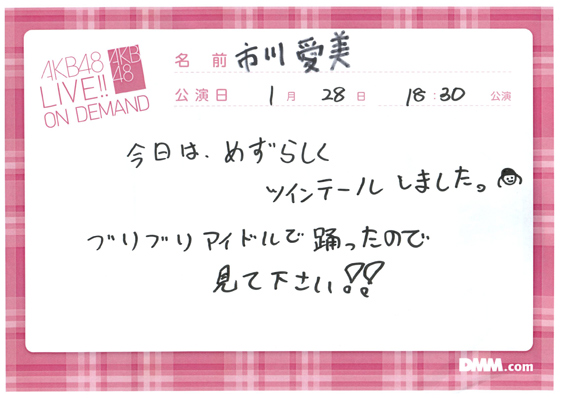 AKB48
LIVE!!
ON DEMAND
AKB
48
名前 市川愛美
公演日 1月 28日 18:30 公演
今日は、めずらしく
ツインテールしました。
ブリブリアイドルで踊ったので
見て下さい!!
DMM.com